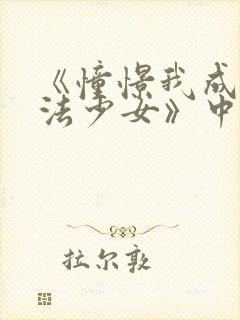 《憧憬我成
法少女》中
拉尔敦